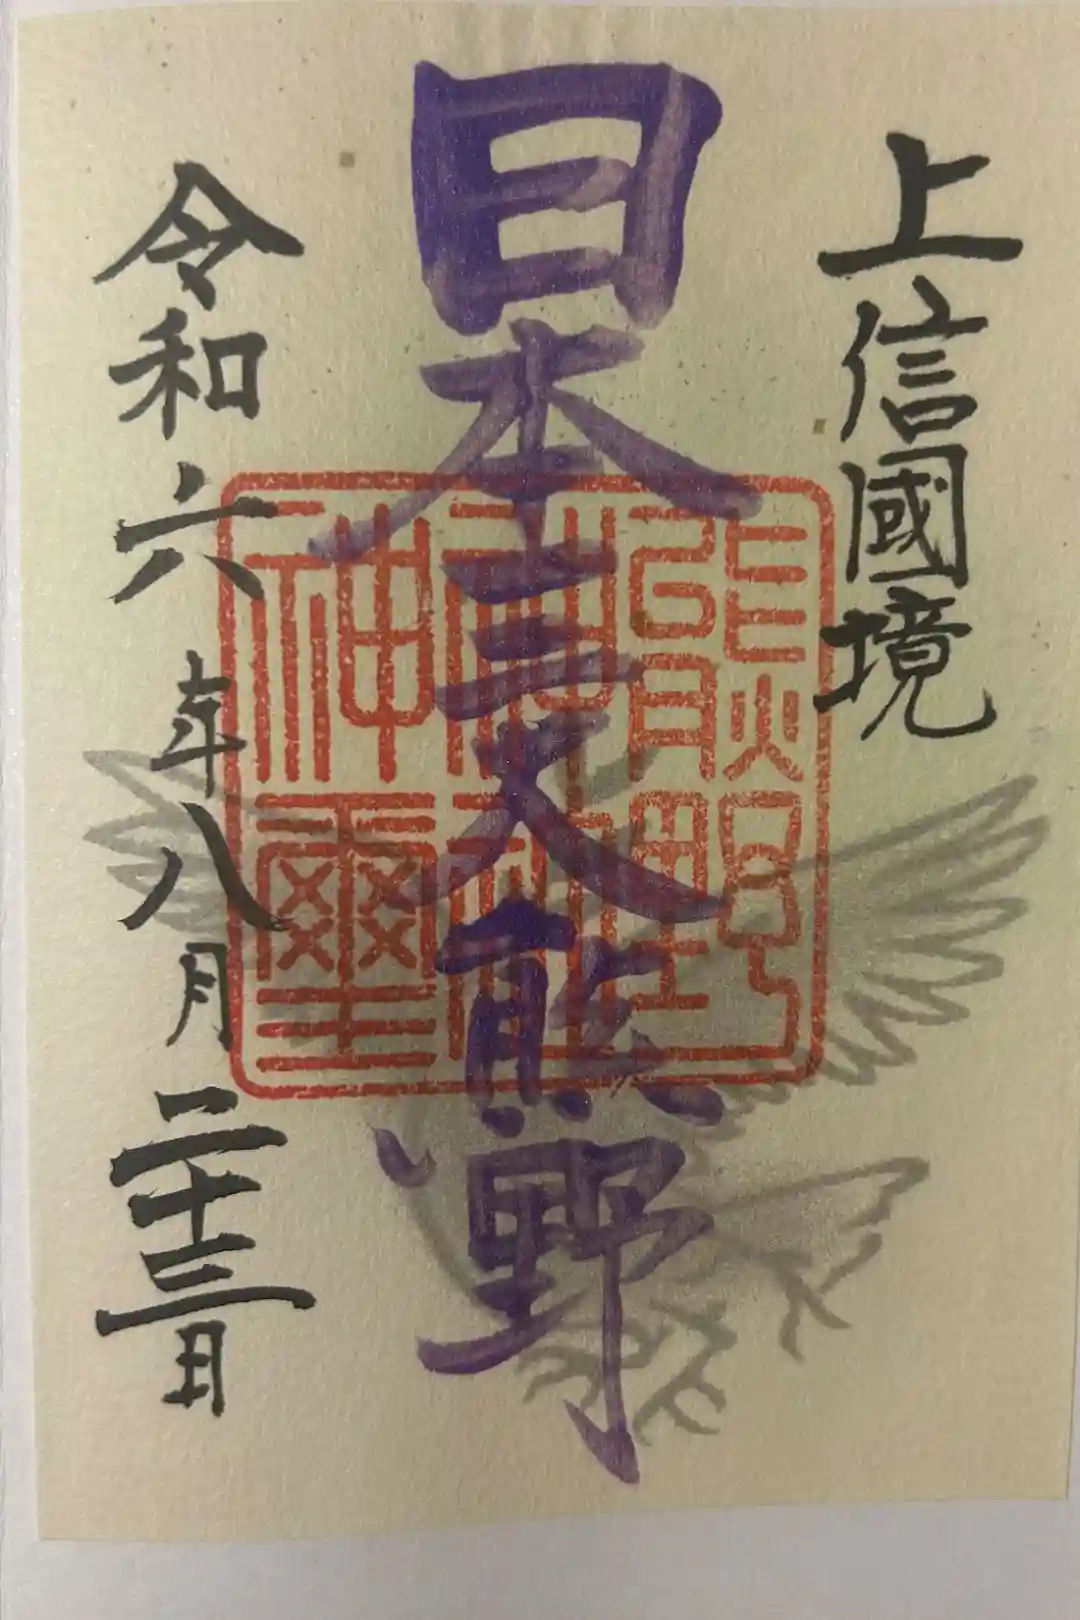 上信國境
日本三大熊野
熊野
神社
神璽
令和六年八月二十三日